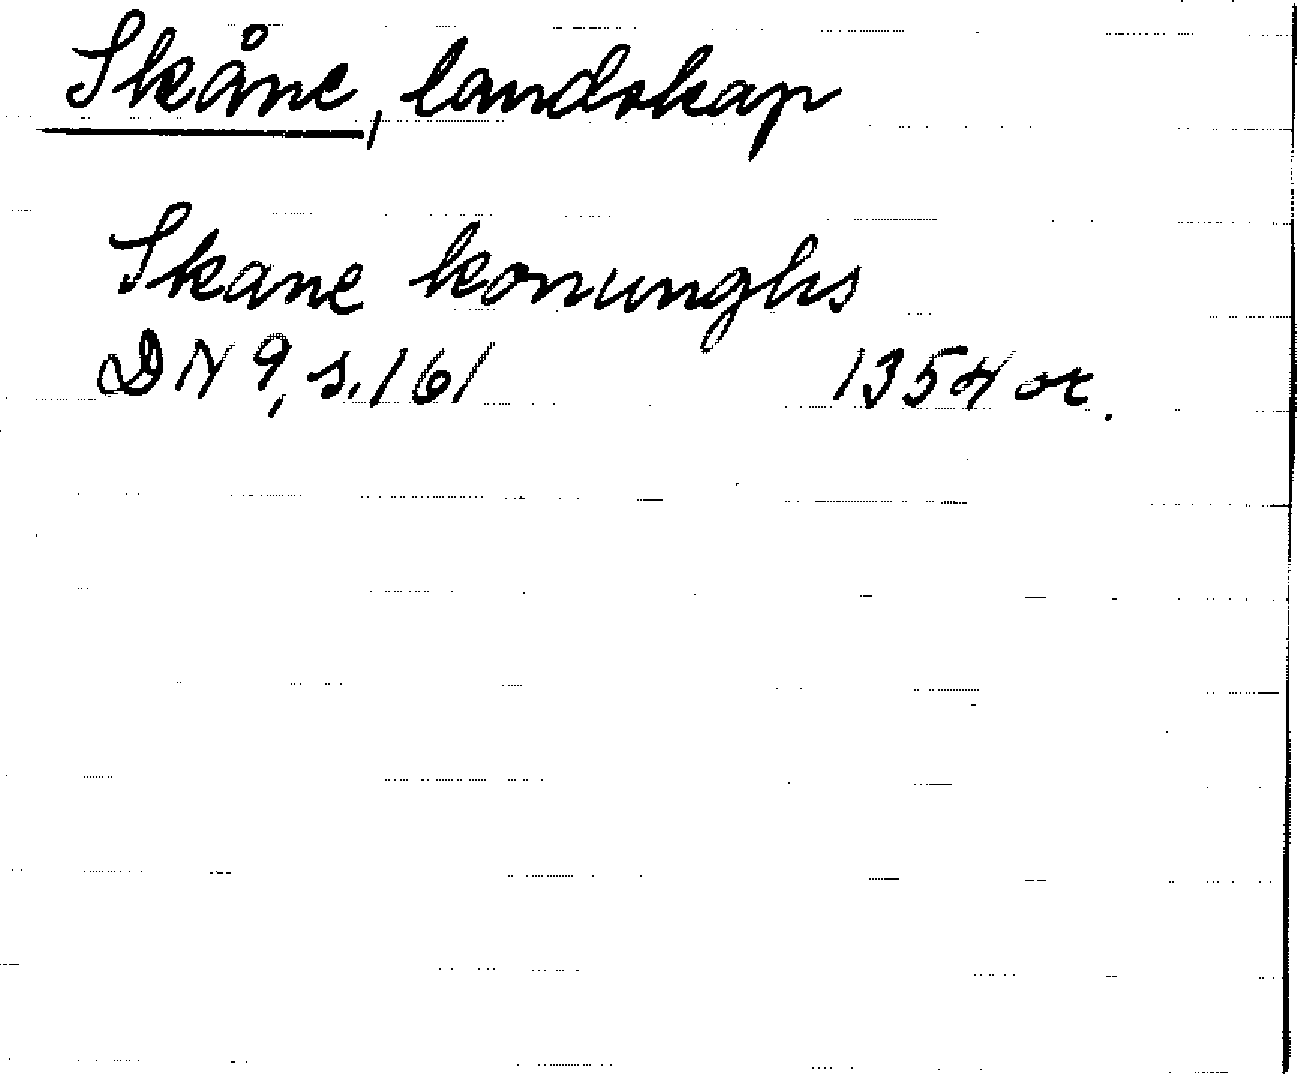 Skåne, landskap
Skane konunghs
DN 9, s. 161 1354 or.